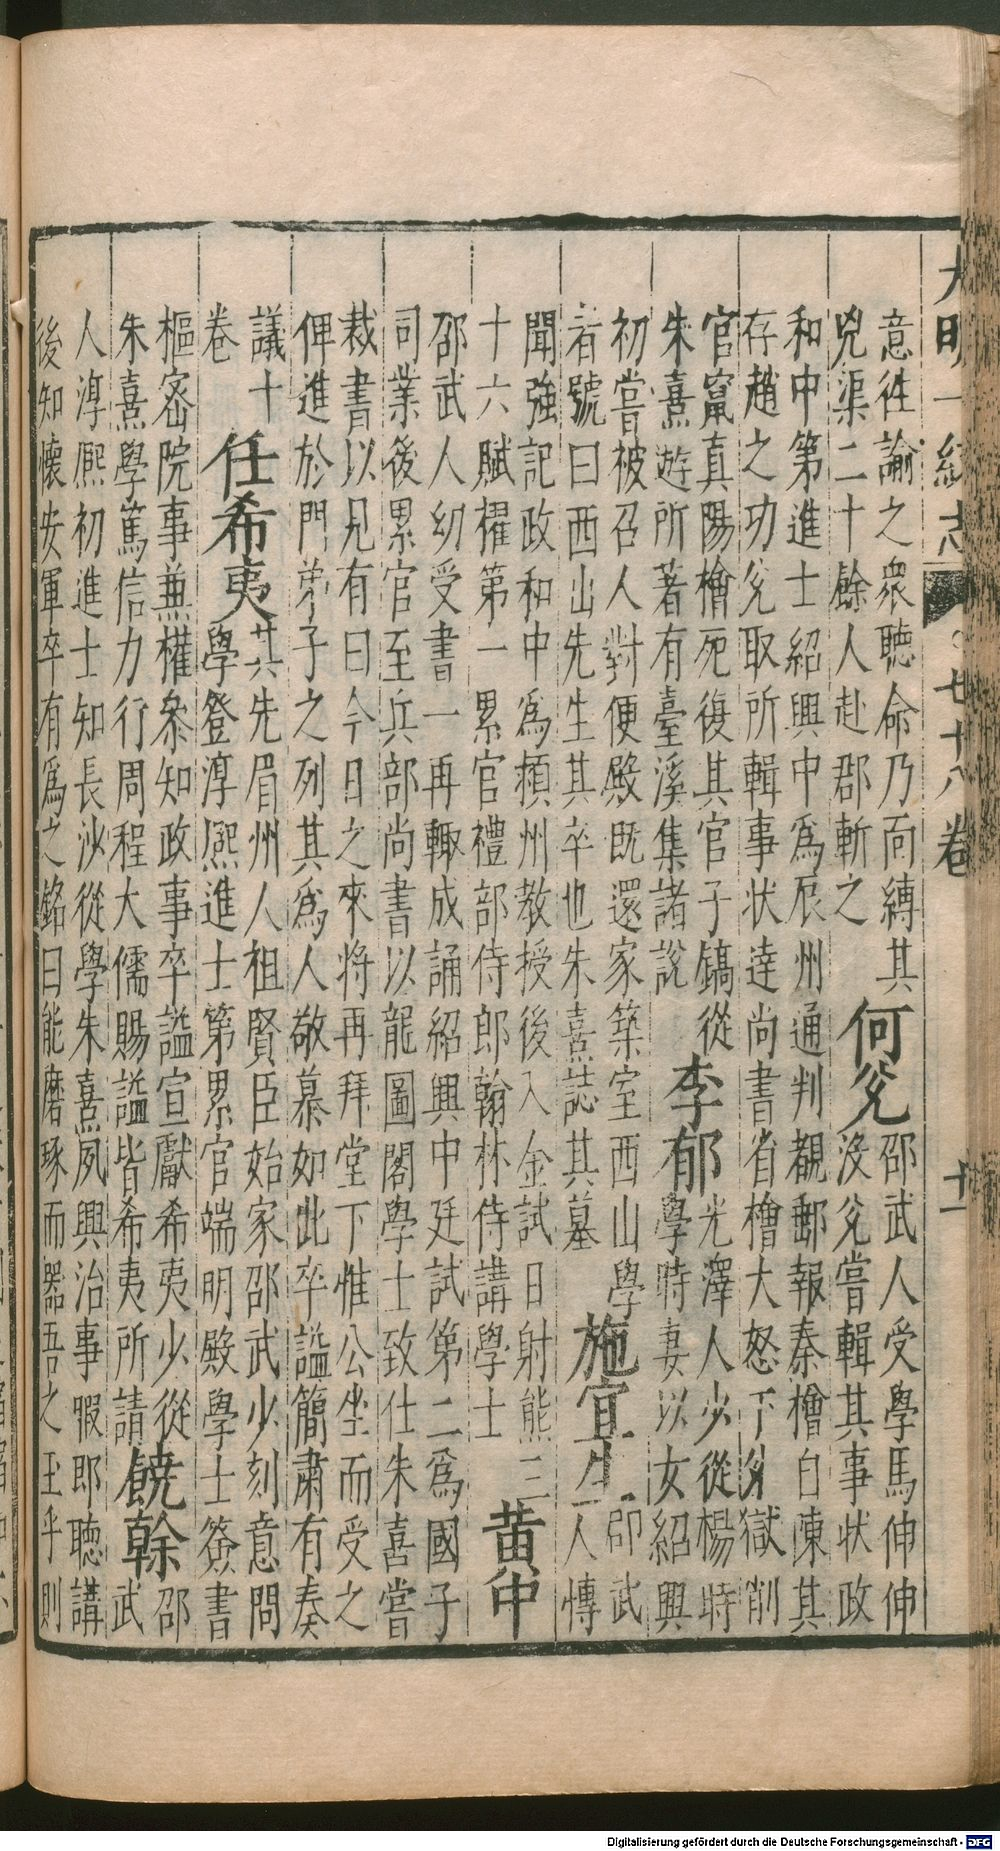 大明一統志 七十八卷 十一
意往論之衆聽命乃面縛其
兇渠二十餘人赴郡斬之
何兌
邵武人受學馬伸伸
沒兌嘗輯其事状政
和中第進士紹興中為辰州通判覩郵報秦檜自陳其
存趙之功兌取所輯事状達尚書省檜大怒下兌獄削
官竄真陽檜死復其官子鎬從
朱熹遊所著有臺溪集諸說
李郁
光澤人少從楊時
學時妻以女紹興
初嘗被召入對便殿既還家築室西山學
者號曰西山先生其卒也朱熹誌其墓
施宜生
邵武
人慱
聞強記政和中為頴州教授後入金試日射熊三
十六賦擢第一累官禮部侍郎翰林侍講學士
黄中
邵武人幼受書一再輙成誦紹興中廷試第二為國子
司業後累官至兵部尚書以龍圖閣學士致仕朱喜嘗
裁書以見有曰今日之來将再拜堂下惟公坐而受之
俾進於門弟子之列其為人敬慕如此卒謚簡肅有奏
議十
卷
任希夷
其先眉州人祖賢臣始家邵武少刻意問
學登淳熈進士第累官端明殿學士簽書
樞宻院事兼權叅知政事卒謚宣獻希夷少從
朱熹學篤信力行周程大儒賜謚皆希夷所請
饒幹
邵
武
人淳熈初進士知長沙從學朱熹夙興治事暇即聽講
後知懐安軍卒有為之銘曰能磨琢而器吾之玉乎則
Digitalisierung gefördert durch die Deutsche Forschungsgemeinschaft - DFG